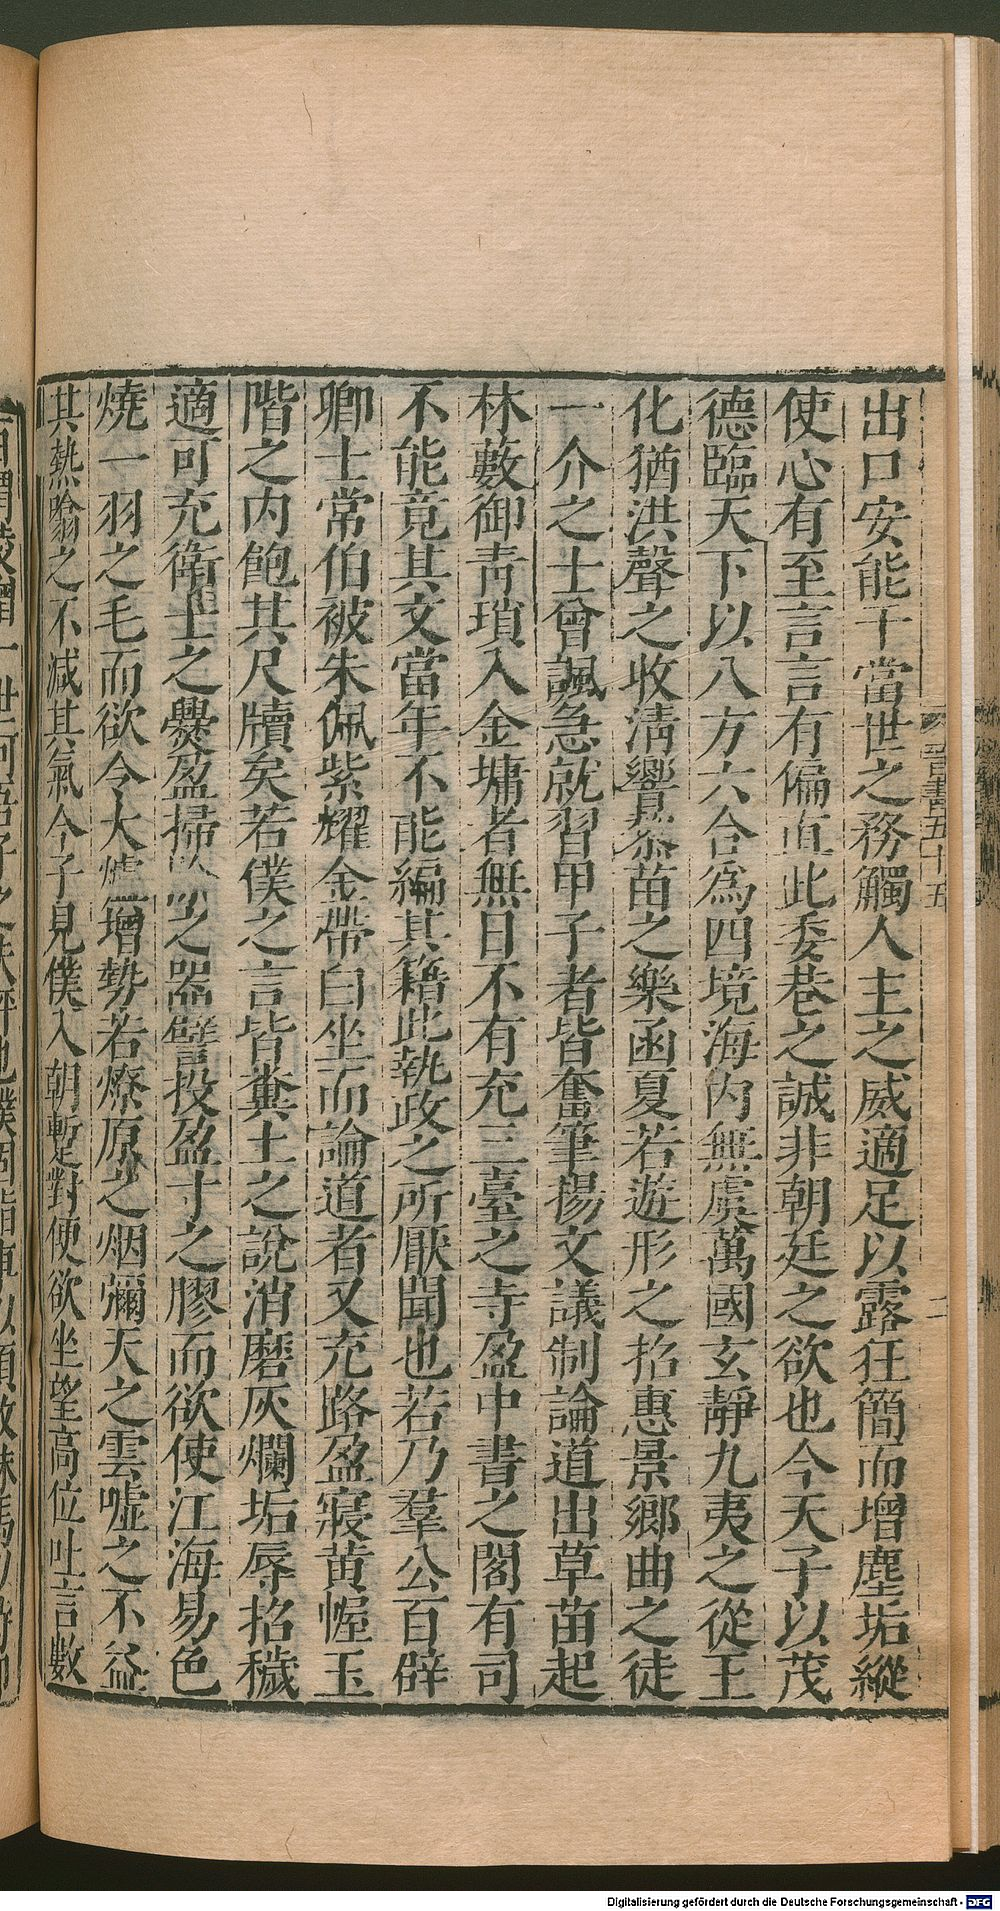 出口安能干當世之務觸人主之威適足以露狂簡而增塵垢縱
使心有至言言有偏直此委巷之誠非朝廷之欲也今天子以茂
德臨天下以八方六合爲四境海内無虞萬國玄靜九夷之從王
化猶洪聲之收清響黎苗之樂函夏若遊形之招惠景鄉曲之徒
一介之士曾諷急就習甲子者皆奮筆揚文議制論道出草苗起
林藪御青瑣入金墉者無日不有充三臺之寺盈中書之閣有司
不能竟其文當年不能編其籍此執政之所厭聞也若乃羣公百辟
卿士常伯被朱佩紫耀金帶白坐而論道者又充路盈寢黄幄玉
階之内飽其尺牘矣若僕之言皆糞土之說消磨灰爛垢辱招穢
適可充衞士之爨盈掃之器譬投盈寸之膠而欲使江海易色
燒一羽之毛而欲令大爐增勢若燎原之烟彌天之雲噓之不益
其熱噏之不減其氣今子見僕入朝蹔對便欲坐望高位吐言數
晉書五十五
Digitalisierung gefördert durch die Deutsche Forschungsgemeinschaft - DFG